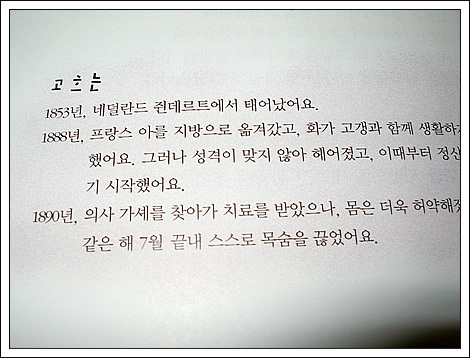 고흐는
1853년, 네덜란드 쥔데르트에서 태어났어요.
1888년, 프랑스 아를 지방으로 옮겨갔고, 화가 고갱과 함께 생활하기
했어요. 그러나 성격이 맞지 않아 헤어졌고, 이때부터 정신
기 시작했어요.
1890년, 의사 가셰를 찾아가 치료를 받았으나, 몸은 더욱 허약해졌
같은 해 7월 끝내 스스로 목숨을 끊었어요.